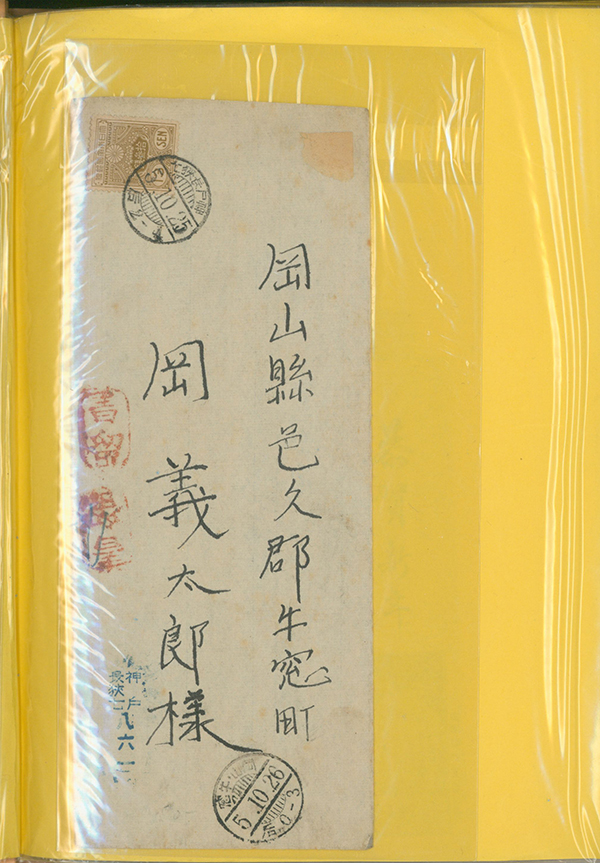 岡山縣邑久郡牛窓町
岡義太郎様
書留
SEN
5.10.25
5.10.26
0-3
神戸
八六一